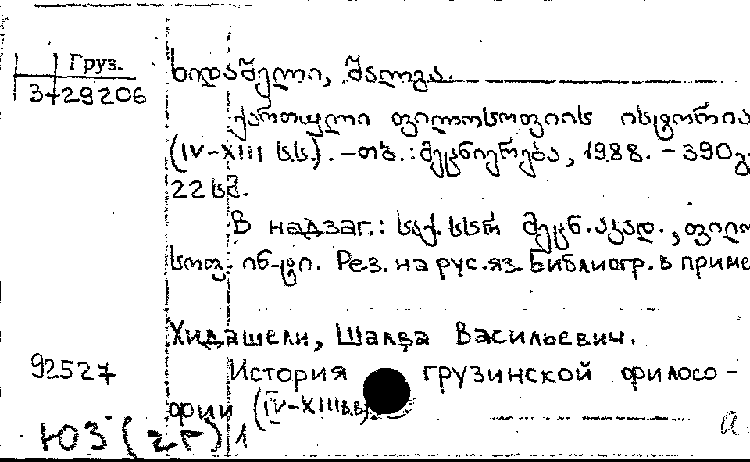 Груз.
3-29206
ხიდაშელი, შალვა.
ქართული ფილოსოფიის ისტორია
(IV-XIII ს.ს.). - თბ.: მეცნიერება, 1988. - 390გ
22 სმ.
В надзаг.: საქ. სსრ მეცნ. აკად., ფილო
სოფ. ინ-ტი. Рез. на рус. яз. Библиогр. в приме
Хидашели, Шалва Васильевич.
92527
История грузинской филосо-
фии (IV-XIII вв).
ЮЗ (2г) 1
а.